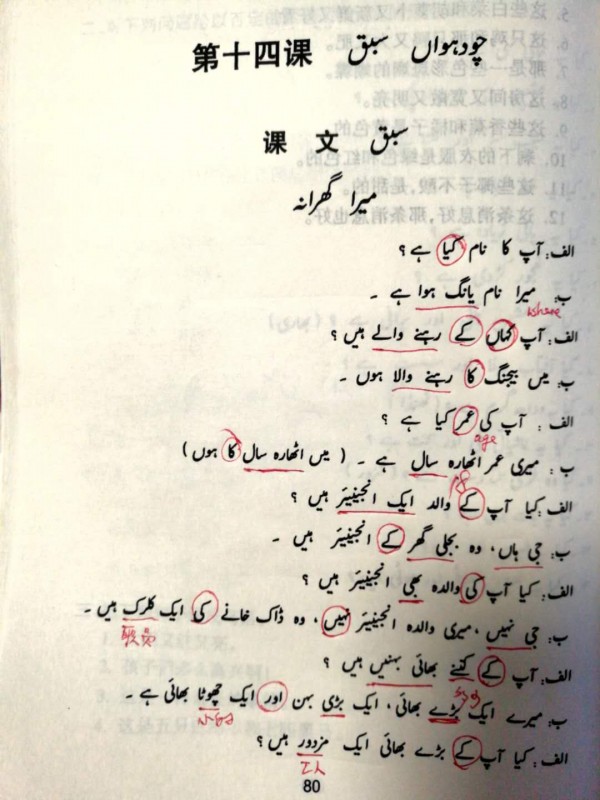 第十四课 چودہواں سبق
课 文 سبق
میرا گھرانہ
الف: آپ کا نام کیا ہے ؟
ب: میرا نام یانگ ہوا ہے ۔
where
الف: آپ کہاں کے رہنے والے ہیں ؟
ب: میں بیجنگ کا رہنے والا ہوں ۔
الف: آپ کی عمر کیا ہے ؟
age
ب: میری عمر اٹھارہ سال ہے ۔ ( میں اٹھارہ سال کا ہوں )
18
الف: کیا آپ کے والد ایک انجینیئر ہیں ؟
ب: جی ہاں، وہ بجلی گھر کے انجینیئر ہیں ۔
الف: کیا آپ کی والدہ بھی انجینیئر ہیں ؟
ب: جی نہیں، میری والدہ انجینیئر نہیں، وہ ڈاک خانے کی ایک کلرک ہیں ۔
职员
الف: آپ کے کتنے بھائی بہنیں ہیں ؟
ب: میرے ایک بڑے بھائی، ایک بڑی بہن اور ایک چھوٹا بھائی ہے ۔
الف: کیا آپ کے بڑے بھائی ایک مزدور ہیں ؟
工人
80